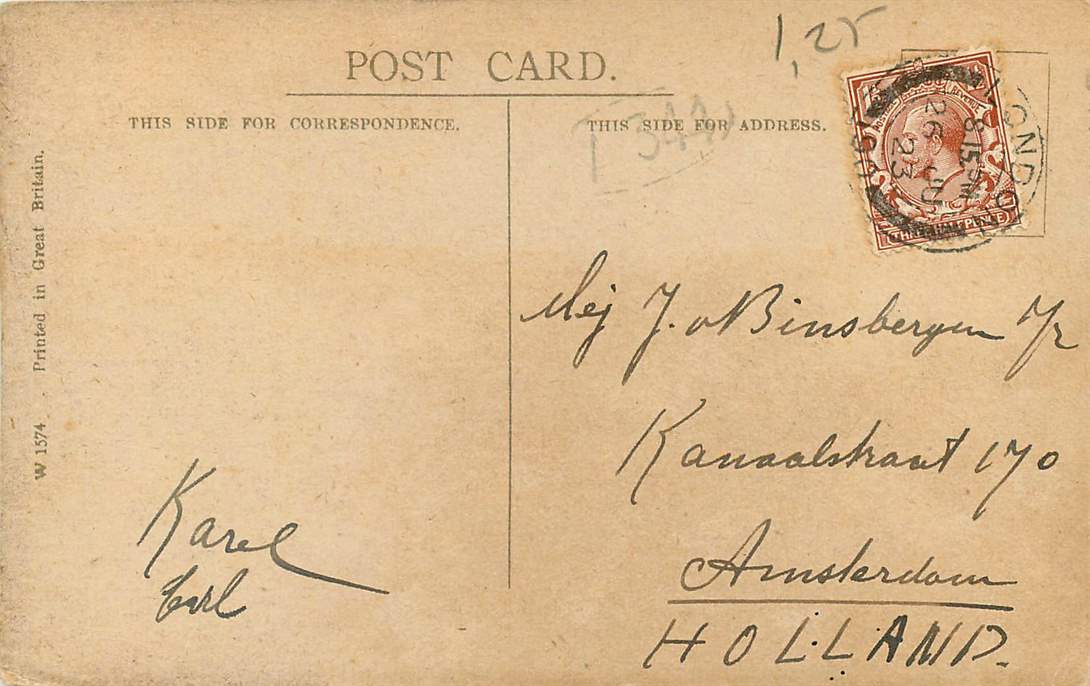 POST CARD.
1,25
THIS SIDE FOR CORRESPONDENCE.
THIS SIDE FOR ADDRESS.
LONDON
8.15 PM
26 JU
23
THREE HALF PENCE
W 1574 . Printed in Great Britain.
Mej J. v Binsbergen
Kanaalstraat 170
Amsterdam
HOLLAND.
Karel